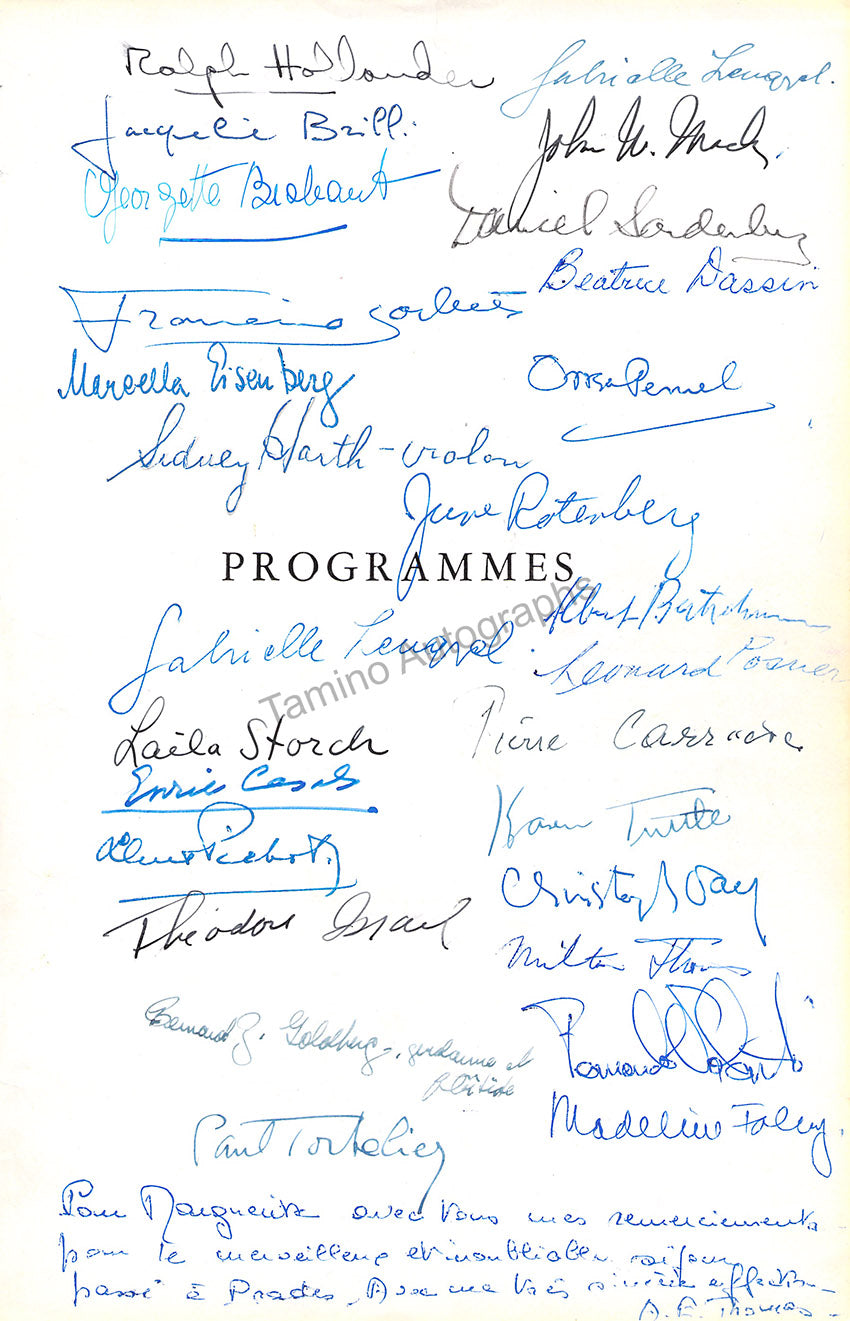 Ralph Hollander
Gabrielle Lengyel.
Jacqueline Brill.
John W. Mack
Georgette Brabant
Daniel Sordenberg
Beatrice Dassin
Marcella Eisenberg
Sidney Harth - violon
June Rotenberg
PROGRAMMES
Albert
Gabrielle Lengyel
Leonard Posner
Tamino Autographs
Laila Storch
Pierre
Enric Casals
Karen Tuttle
Théodore Israel
Milton Thomas
Bernard Z. Goldberg -, gendarme et
flûtiste
Madeline Foley
Paul Tortelier
Pour Marguerite avec tous mes remerciements
pour le merveilleux et inoubliable séjour
passé à Prades. Avec ma très sincère affection -
Thomas -